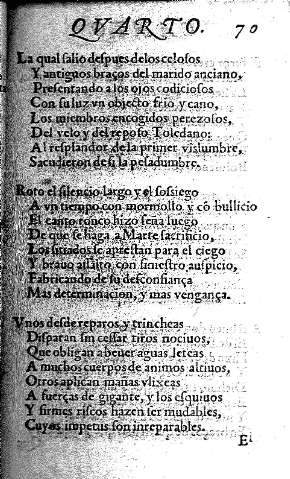 QVARTO. 70
La qual salio despues de los celosos
Y antiguos braços del marido anciano,
Presentando a los ojos codiciosos
Con su luz vn objecto frio y cano,
Los miembros encogidos perezosos,
Del yelo y del reposo Toledano:
Al resplandor de la primer vislumbre,
Sacudieron de si la pesadumbre.
Roto el silencio largo y el sossiego
A vn tiempo con mormollo y cō bullicio
El canto ronco hizo seña luego
De que se haga a Marte sacrificio,
Los sitiados se aprestan para el ciego
Y brauo assalto, con siniestro auspicio,
Fabricando de su desconfiança
Mas determinacion, y mas vengança.
Vnos desde reparos, y trincheas
Disparan sin cessar tiros nociuos,
Que obligan a beuer aguas leteas
A muchos cuerpos de animos altiuos,
Otros aplican mañas vlixeas
A fuerças de gigante, y los esquiuos
Y firmes riscos hazen ser mudables,
Cuyos impetus son irreparables.
El